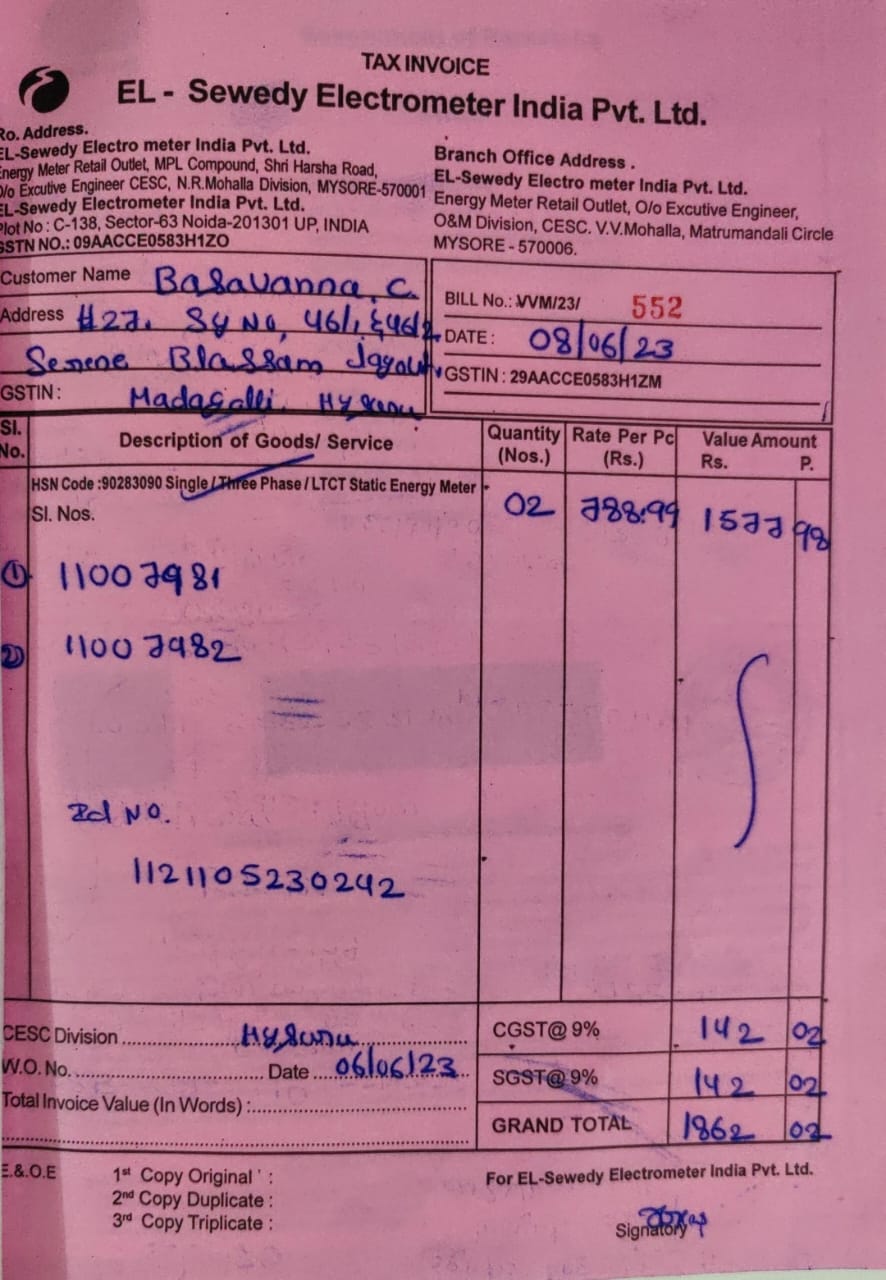 TAX INVOICE
EL - Sewedy Electrometer India Pvt. Ltd.
Ro. Address.
EL-Sewedy Electro meter India Pvt. Ltd.
Energy Meter Retail Outlet, MPL Compound, Shri Harsha Road,
O/o Excutive Engineer CESC, N.R.Mohalla Division, MYSORE-570001
EL-Sewedy Electrometer India Pvt. Ltd.
Plot No : C-138, Sector-63 Noida-201301 UP, INDIA
GSTN NO.: 09AACCE0583H1ZO
Branch Office Address .
EL-Sewedy Electro meter India Pvt. Ltd.
Energy Meter Retail Outlet, O/o Excutive Engineer,
O&M Division, CESC. V.V.Mohalla, Matrumandali Circle
MYSORE - 570006.
Customer Name Basavanna, C.
Address #27, Sy No, 46/1, & 46/2
Serene Blassam
GSTIN : Madagalli, Mysuru
BILL No.: VVM/23/ 552
DATE : 08/06/23
GSTIN : 29AACCE0583H1ZM
Sl. No. Description of Goods/ Service Quantity (Nos.) Rate Per Pc (Rs.) Value Amount Rs. P.
HSN Code :90283090 Single / Three Phase / LTCT Static Energy Meter
Sl. Nos. 02 788.99 1577 98
① 11007981
② 11007982
Id No.
1121105230242
CESC Division Mysuru CGST@ 9% 142 02
W.O. No. Date 06/06/23 SGST@ 9% 142 02
Total Invoice Value (In Words) : GRAND TOTAL 1862 02
E.&.O.E
1st Copy Original ' :
2nd Copy Duplicate :
3rd Copy Triplicate :
For EL-Sewedy Electrometer India Pvt. Ltd.
Signatory